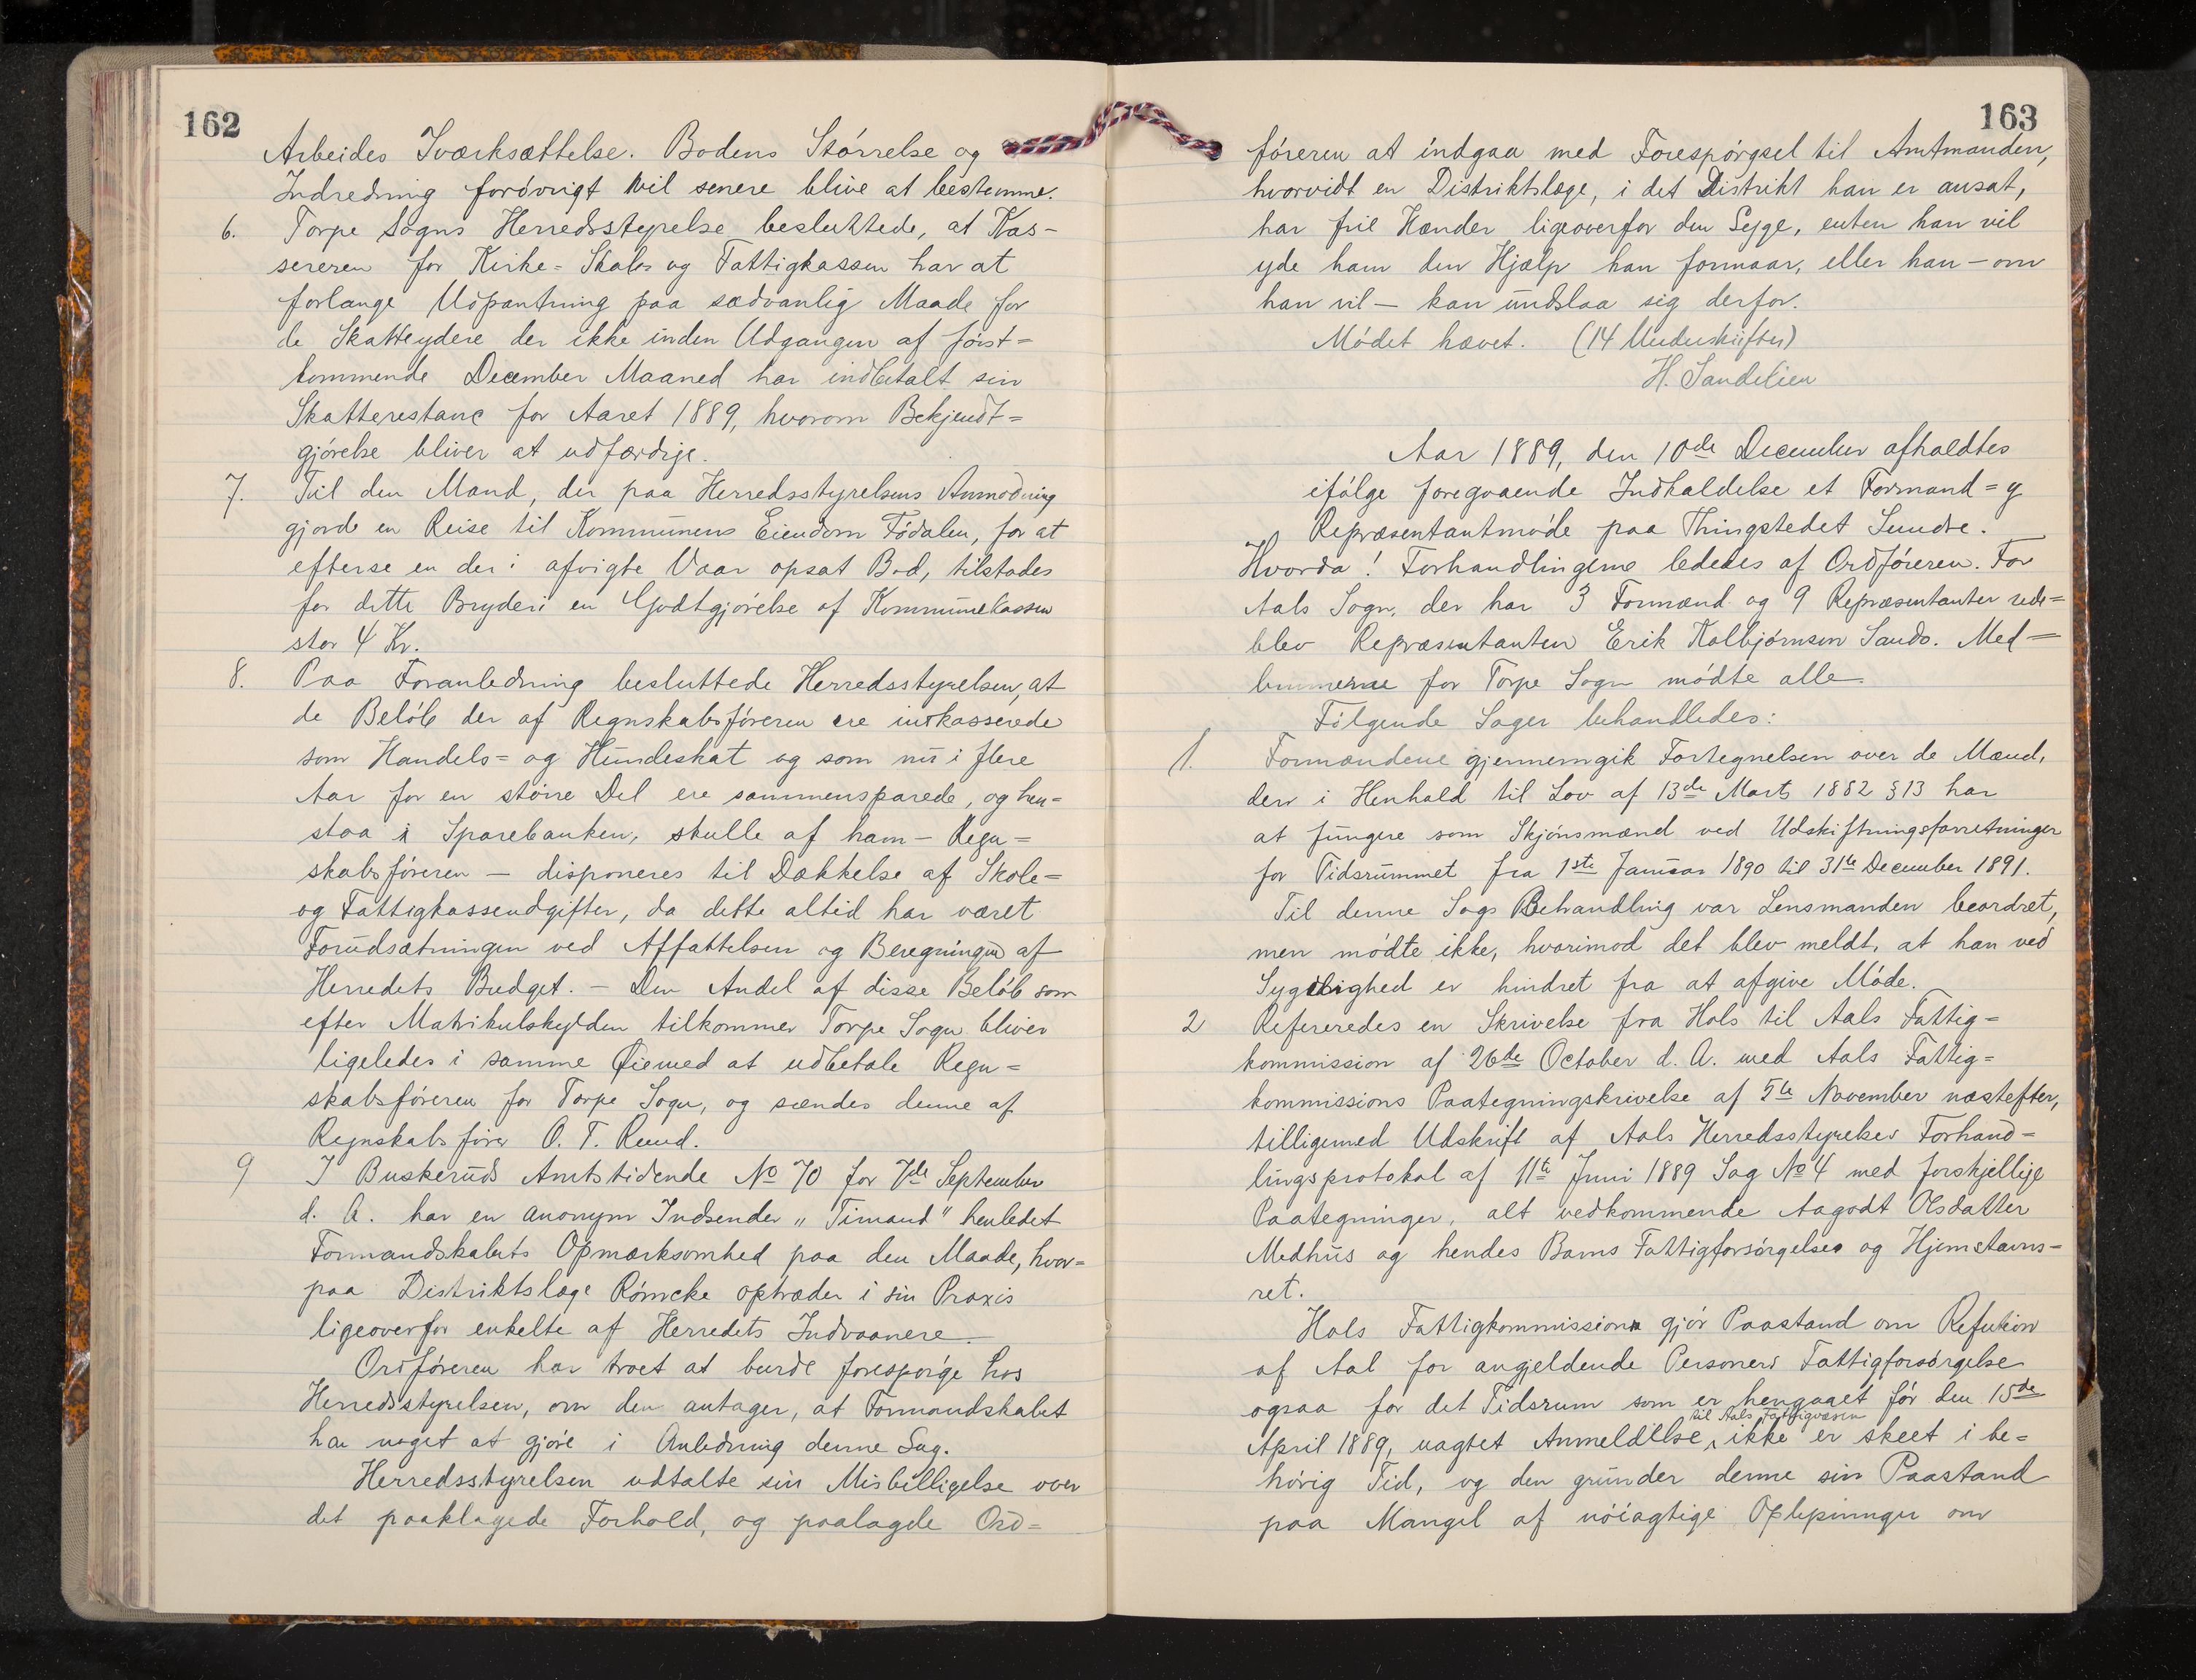 162
Arbeides Iværksættelse. Bodens Størrelse og
Indredning forøvrigt vil senere blive at bestemme.
6. Torpe Sogns Herredsstyrelse besluttede, at Kas-
sereren for Kirke- Skole- og Fattigkassen har at
forlange Udpantning paa sædvanlig Maade for
de Skatteydere der ikke inden Udgangen af først=
kommende December Maaned har indbetalt sin
Skatterestanc for Aaret 1889, hvorom Bekjendt=
gjørelse bliver at udfærdige.
7. Til den Mand, der paa Herredsstyrelsens Anmodning
gjorde en Reise til Kommunens Eiendom Fødalen, for at
efterse en der i afvigte Vaar opsat Bod, tilstodes
for dette Bryderi en Godtgjørelse af Kommunekassen
stor 4 Kr.
8. Paa Foranledning besluttede Herredsstyrelsen, at
de Beløb der af Regnskabsføreren ere indkasserede
som Handels= og Hundeskat og som nu i flere
Aar for en større Del ere sammensparede, og hen=
staa i Sparebanken, skulle af ham - Regn=
skabsføreren - disponeres til Dækkelse af Skole=
og Fattigkassendgifter, da dette altid har været
Forudsætningen ved Affattelsen og Beregningen af
Herredets Budget. - Den Andel af disse Beløb som
efter Matrikulskylden tilkommer Torpe Sogn bliver
ligeledes i samme Øiemed at udbetale Regn=
skabsføreren for Torpe Sogn, og sendes denne af
Regnskabsfører O. T. Ruud.
9 I Buskeruds Amtstidende No 70 for 7de September
d. A. har en anonym Indsender „Timand" henledet
Formandskabets Opmærksomhed paa den Maade, hvor=
paa Distriktslæge Rømcke optræder i sin Praxis
ligeoverfor enkelte af Herredets Indvaanere.
Ordføreren har troet at burde forespørge hos
Herredsstyrelsen, om den antager, at Formandskabet
har noget at gjøre i Anledning denne Sag.
Herredsstyrelsen udtalte sin Misbilligelse over
det paaklagede Forhold, og paalagde Ord=
163
føreren at indgaa med Forespørgsel til Amtmanden,
hvorvidt en Distriktslæge, i det Distrikt han er ansat,
har frie Hænder ligeoverfor den Syge, enten han vil
yde ham den Hjælp han formaar, eller han - om
han vil - kan undslaa sig derfor.
Mødet hævet. (14 Underskrifter)
H. Sandelien
Aar 1889, den 10de December afholdtes
ifølge foregaaende Indkaldelse et Formand= g
Repræsentantmøde paa Thingstedet Sundre.
Hvorda! Forhandlingerne lededes af Ordføreren. For
Aals Sogn, der har 3 Formænd og 9 Repræsentanter ude=
blev Repræsentanten Erik Kolbjørnsen Sando. Med=
lemmerne for Torpe Sogn mødte alle.
Følgende Sager behandledes:
1. Formændene gjennemgik Fortegnelsen over de Mænd,
der i Henhold til Lov af 13de Marts 1882 § 13 har
at fungere som Skjønsmænd ved Udskiftningsforretninger
for Tidsrummet fra 1ste Januar 1890 til 31te December 1891.
Til denne Sags Behandling var Lensmanden beordret,
men mødte ikke, hvorimod det blev meldt, at han ved
Sygelighed er hindret fra at afgive Møde.
2 Refereredes en Skrivelse fra Hols til Aals Fattig=
kommission af 26de October d. A. med Aals Fattig=
kommissions Paategningskrivelse af 5te November næstefter,
tilligemed Udskrift af Aals Herredsstyrelses Forhand=
lingsprotokol af 11te Juni 1889 Sag No 4 med forskjellige
Paategninger, alt vedkommende Aagodt Olsdatter
Medhus og hendes Barns Fattigforsørgelse og Hjemstavns-
ret.
Hols Fattigkommission gjør Paastand om Refusion
af Aal for angjeldende Personers Fattigforsørgelse
ogsaa for det Tidsrum som er hengaaet før den 15de
til Aals Fattigvæsen
April 1889, uagtet Anmeldelse, ikke er skeet i be=
hørig Tid, og den grunder denne sin Paastand
paa Mangel af nøiagtige Oplysninger om